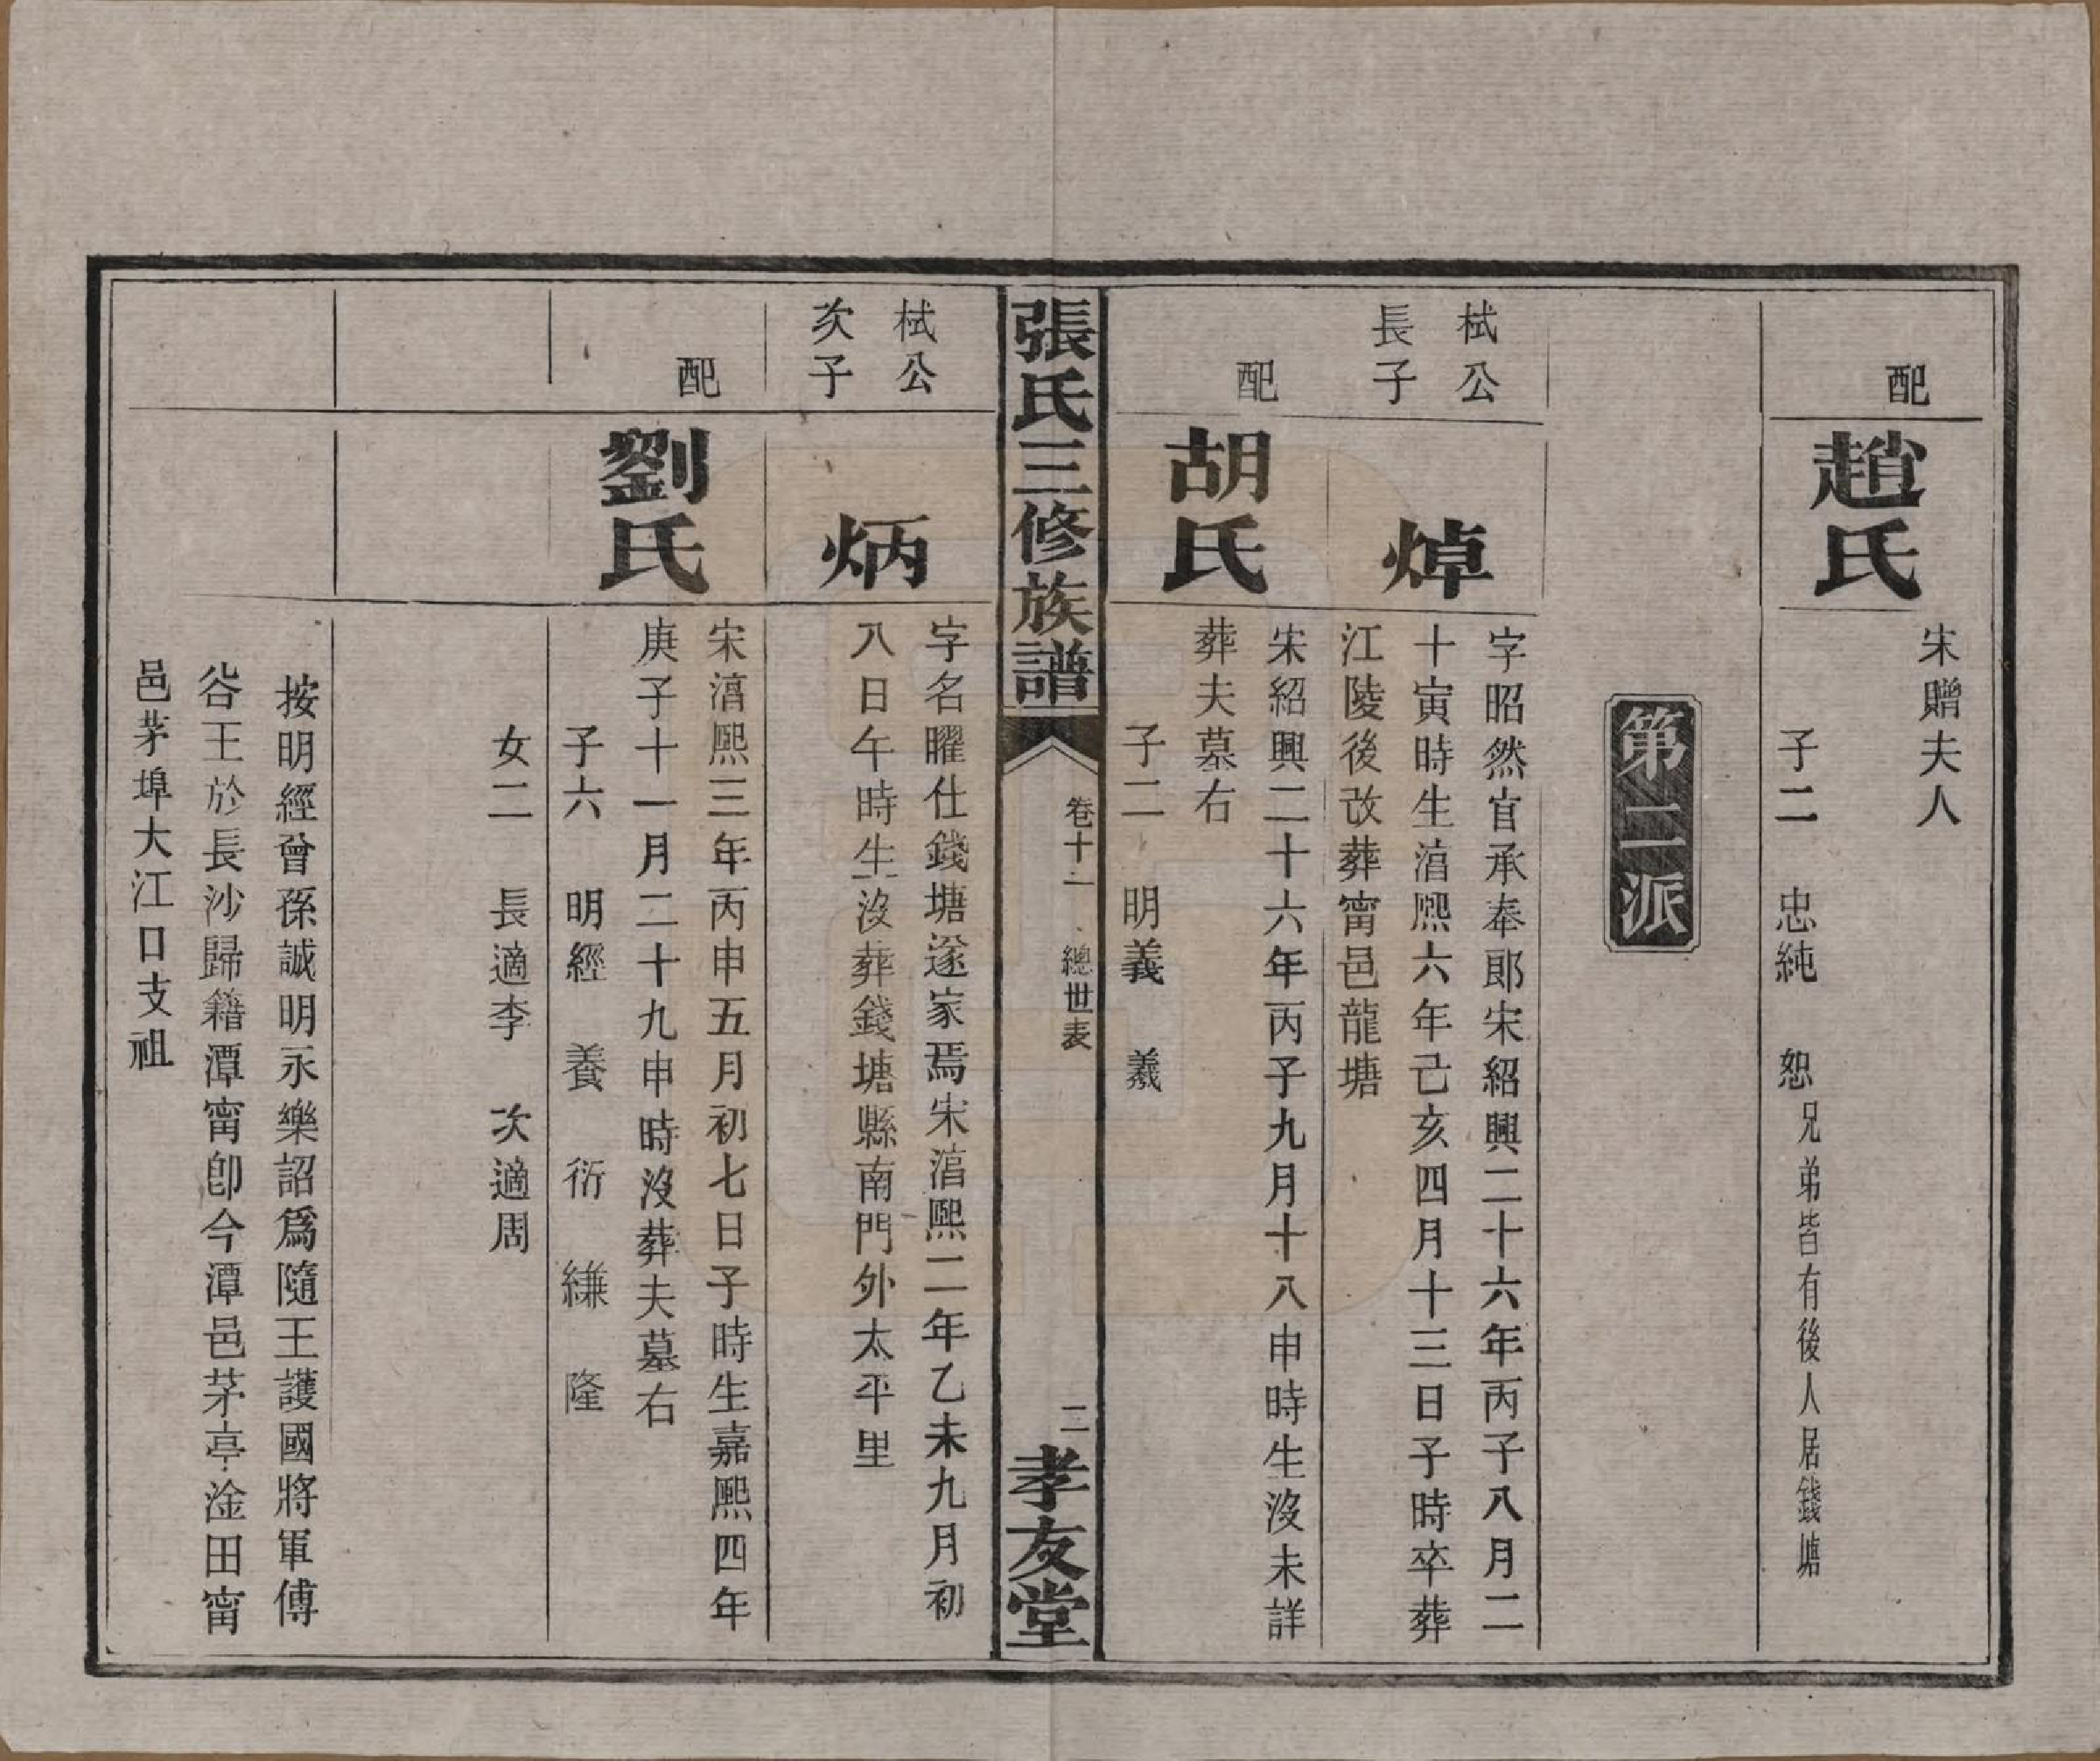 配
趙氏
宋贈夫人
子二　忠純　恕兄弟皆有後人居錢塘
第二派
栻公
長子
焯
字昭然官承奉郎宋紹興二十六年丙子八月二
十寅時生淯熙六年己亥四月十三日子時卒葬
江陵後改葬甯邑龍塘
配
胡氏
宋紹興二十六年丙子九月十八申時生沒未詳
葬夫墓右
子二　明義　羲
張氏三修族譜
卷十一　總世表
二
孝友堂
栻公
次子
炳
字名曜仕錢塘遂家焉宋淯熙二年乙未九月初
八日午時生沒葬錢塘縣南門外太平里
配
劉氏
宋淯熙三年丙申五月初七日子時生嘉熙四年
庚子十一月二十九申時沒葬夫墓右
子六　明經　養　衍　縑　隆
女二　長適李　次適周
按明經曾孫誠明永樂詔爲隨王護國將軍傅
谷王於長沙歸籍潭甯卽今潭邑茅亭淦田甯
邑茅埠大江口支祖